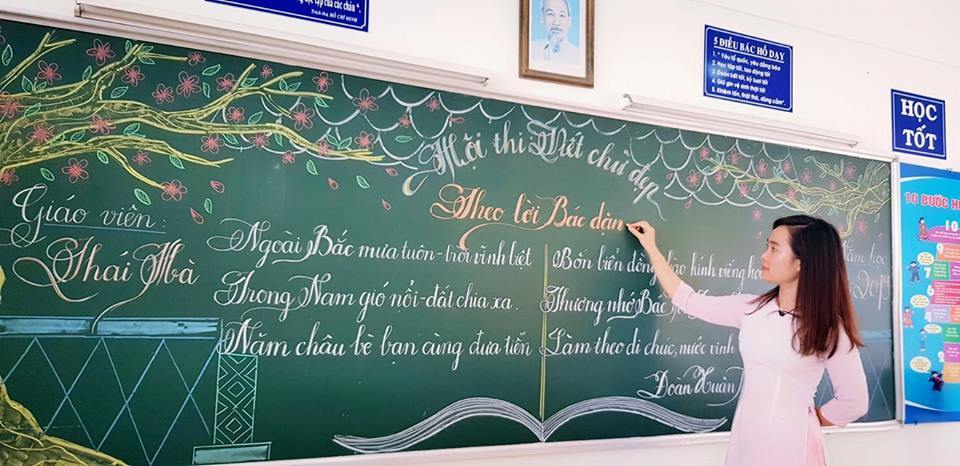 học tập của các cháu".
Trích thư, HỒ CHÍ MINH
5 ĐIỀU BÁC HỒ DẠY
1. " Yêu tổ quốc, yêu đồng bào
2. Học tập tốt, lao động tốt
3. Đoàn kết tốt, kỷ luật tốt
4. Giữ gìn vệ sinh thật tốt
5. Khiêm tốn, thật thà, dũng cảm".
HỌC
TỐT
10 BƯỚC
Hội thi Viết chữ đẹp
Theo lời Bác dặn
Giáo viên:
Thái Hà
Ngoài Bắc mưa tuôn-trời vĩnh biệt
Trong Nam gió nổi-đất chia xa.
Năm châu bè bạn cùng đưa tiễn
Bốn biển đồng bào kính viếng
Thương nhớ Bác
Làm theo di chúc, nước vinh
Đoàn Xuân
học